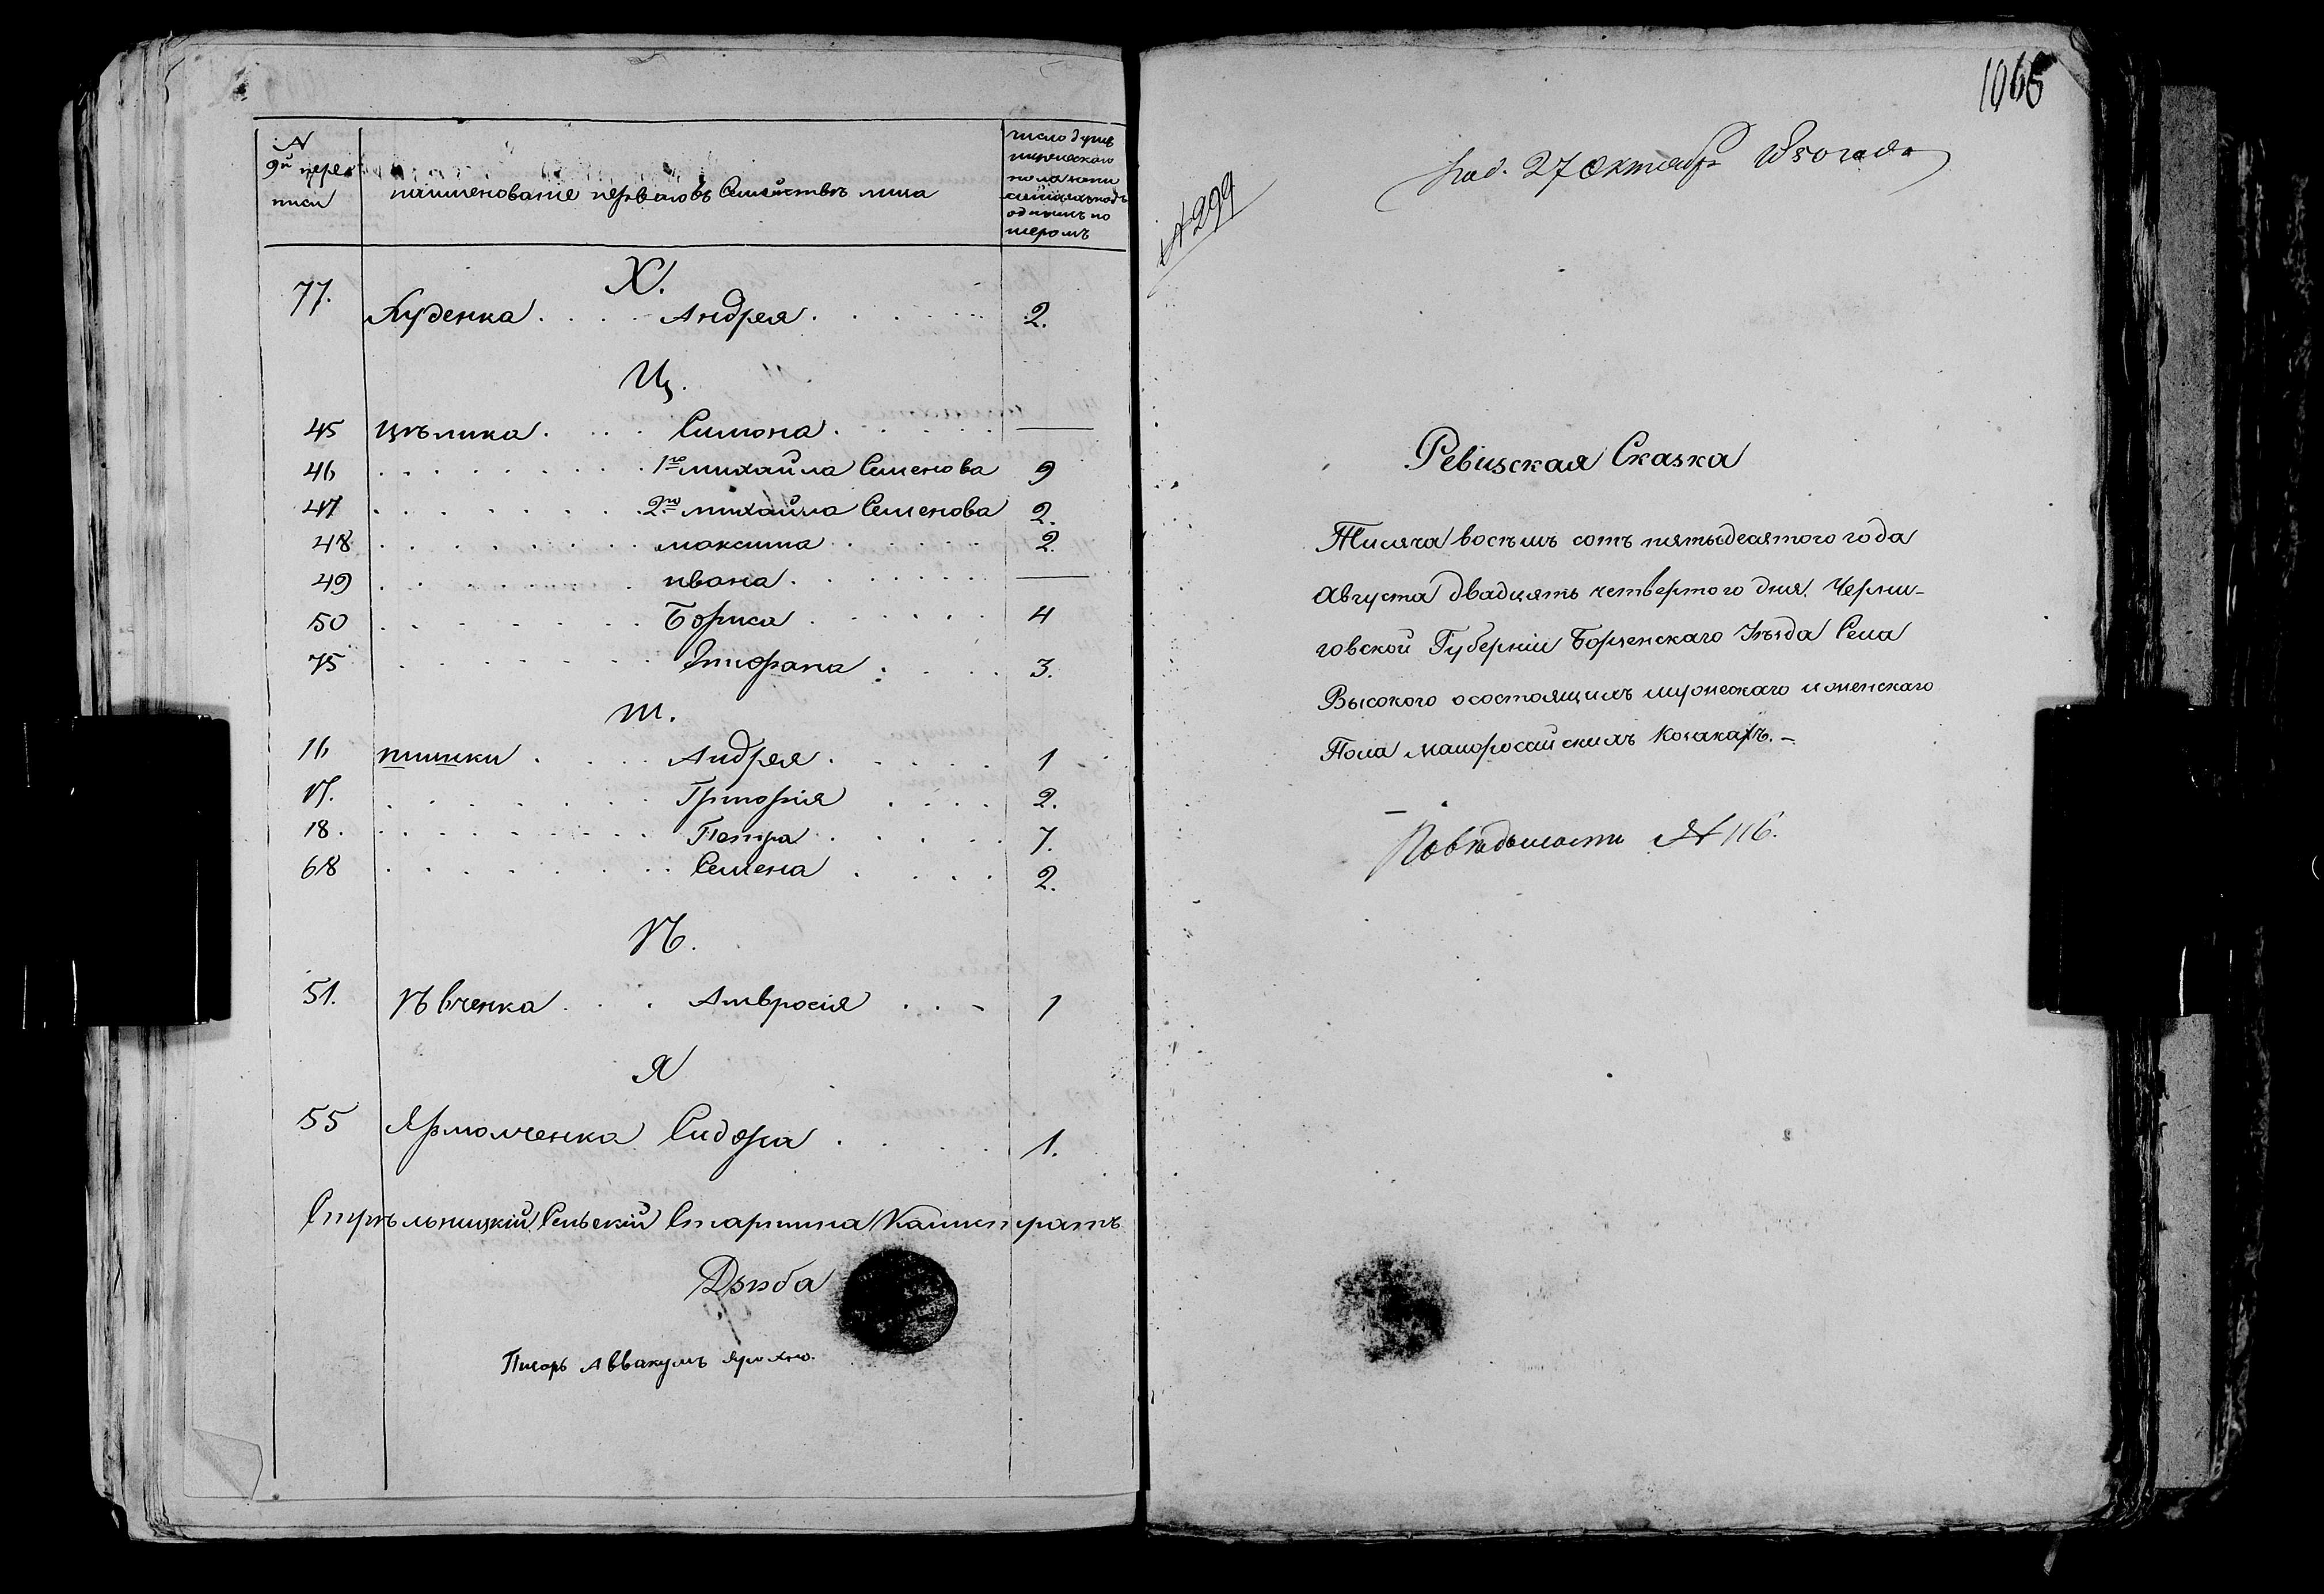 №
9й пере
писи
наименованіе перваго въ Семействѣ лица
число душъ
мужескаго
пола
однимъ но
меромъ
Х.
77. Худенка . . . . Андрея . . . . . . 2.
Ц.
45 цѣлика . . . . Симона . . . . . . —
46 . . . . . . . . . 1го михайла Семенова 9
47 . . . . . . . . . 2го михайла Семенова 2.
48 . . . . . . . . . максима . . . . . . 2.
49 . . . . . . . . . ивана . . . . . . —
50 . . . . . . . . . Бориса . . . . . . 4
75 . . . . . . . . . . . . . 3.
Ш.
16 шишки . . . . Андрея . . . . . . 1
17. . . . . . . . . . Григорія . . . . 2.
18. . . . . . . . . . Петра . . . . . . 7.
68 . . . . . . . . . Семена . . . . . 2.
Ѣ.
51. Ѣвченка . . . Амвросія . . . 1
Я
55 Ярмолченка Сидора . . . . . 1.
Стрѣльницкій Сельскій Старшина Калистратъ
Дзюба
Писарь Аввакумъ
1065
Под. 27 Октября 1850 года
№ 299
Ревизская Сказка
Тисяча восѣмъ сотъ пятьдесятого года
Августа двадцять четвертого дня. Черни-
говской Губерніи Борзенскаго Уѣзда Села
Высокого о состоящихъ мужескаго и женскаго
Пола малоросійскихъ Козакахъ. —
По вѣдомости № 116.